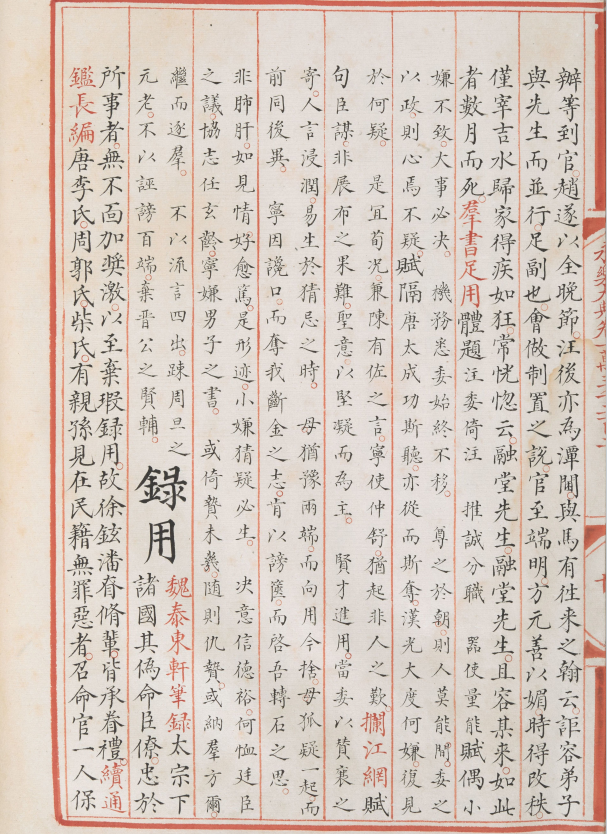 辦等到官。趙遂以全晚節。汪後亦為潭閫。與馬有往來之翰云。詎容弟子
與先生而並行。足副也。會做制置之說。官至端明。方元善以媚時得改秩。
僅宰吉水歸家得疾如狂。常恍惚云。融堂先生。融堂先生。且容某來。如此
者數月而死。羣書足用體題 注委倚注 推誠分職 器使量能 賦偶 小
嫌不致。大事必决。 機務悉委始終不移。 尊之於朝。則人莫能間。委之
以政。則心焉不疑。賦隔唐太成功斯聽。亦從而斯奪。漢光大度何嫌。復見
於何疑。 是冝荀况。兼陳有佐之言。寧使仲舒。猶起非人之歎。攔江網賦
句臣謀。非展布之果難。聖意以堅凝而為主。 賢才進用。當委以贊襄之
寄。人言浸潤。易生於猜忌之時。 毋猶豫兩端。而向用今捨。毋狐疑一起而
前同後異。 寧因讒口。而奪我斷金之志。肯以謗篋。而啓吾轉石之思。
非肺肝。如見情。好愈篤。是形迹。小嫌猜疑必生。 决意信德裕。何恤廷臣
之議。協志任玄齡。寧嫌男子之書。 或倚贄未幾。隨則仇贄。或納羣方爾。
繼而逐羣。 不以流言四出。踈周旦之
元老。不以誣謗百端。棄晉公之賢輔。
錄用
魏泰東軒筆録太宗下
諸國其偽命臣僚。忠於
所事者。無不面加奬激。以至棄瑕録用。故徐鉉潘眘脩輩。皆承眷禮。續通
鑑長編唐李氏。周郭氏。柴氏。有親孫見在民籍無罪惡者。召命官一人保